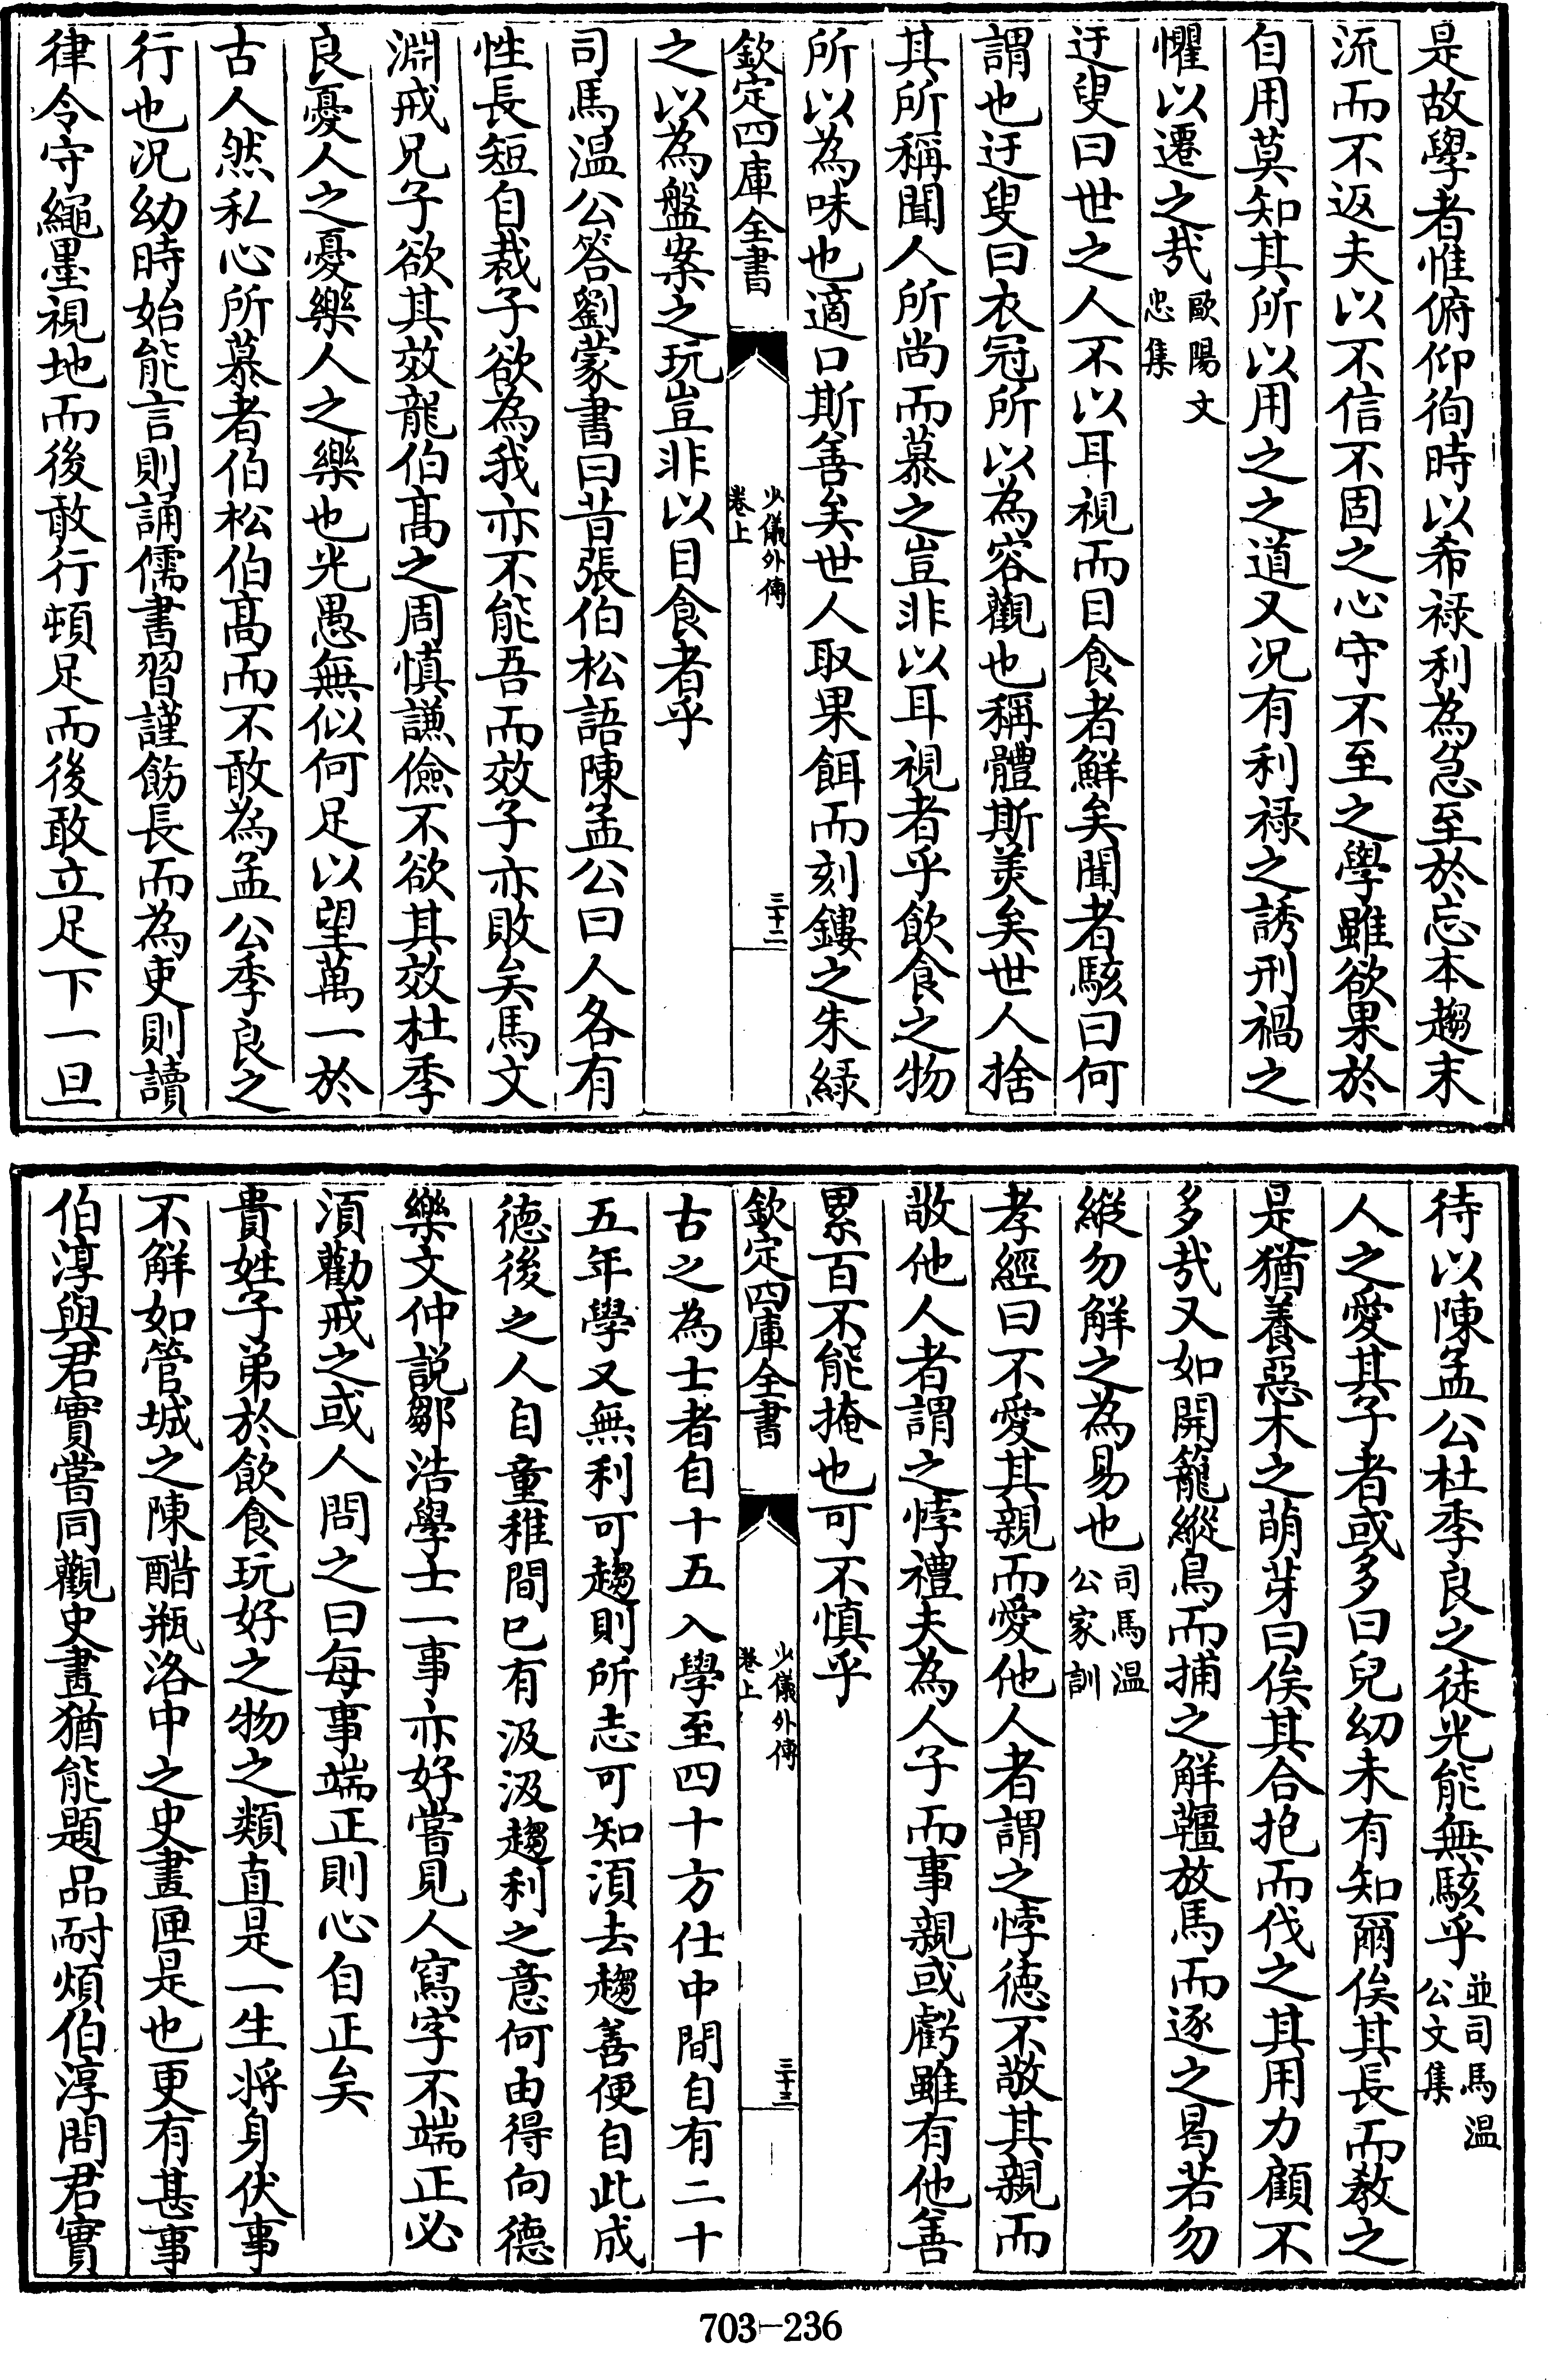 是故學者惟俯仰徇時以希祿利為急至於忘本趨末
流而不返夫以不信不固之心守不至之學雖欲果於
自用莫知其所以用之之道又况有利祿之誘刑禍之
懼以遷之哉歐陽文忠集
迂叟曰世之人不以耳視而目食者鮮矣聞者駭曰何
謂也迂叟曰衣冠所以為容觀也稱體斯美矣世人捨
其所稱聞人所尚而慕之豈非以耳視者乎飲食之物
所以為味也適口斯善矣世人取果餌而刻鏤之朱綠
欽定四庫全書 少儀外傳卷上 三十二
之以為盤案之玩豈非以目食者乎
司馬温公答劉蒙書曰昔張伯松語陳孟公曰人各有
性長短自裁子欲為我亦不能吾而效子亦敗矣馬文
淵戒兄子欲其效龍伯髙之周慎謙儉不欲其效杜季
良憂人之憂樂人之樂也光愚無似何足以望萬一於
古人然私心所慕者伯松伯髙而不敢為孟公季良之
行也况幼時始能言則誦儒書習謹飭長而為吏則讀
律令守繩墨視地而後敢行頓足而後敢立足下一旦
待以陳孟公杜季良之徒光能無駭乎並司馬温公文集
人之愛其子者或多曰兒幼未有知爾俟其長而教之
是猶養惡木之萌芽曰俟其合抱而伐之其用力顧不
多哉又如開籠縱鳥而捕之解韁放馬而逐之曷若勿
縱勿解之為易也司馬温公家訓
孝經曰不愛其親而愛他人者謂之悖徳不敬其親而
敬他人者謂之悖禮夫為人子而事親或虧雖有他善
累百不能掩也可不慎乎
欽定四庫全書 少儀外傳卷上 三十三
古之為士者自十五入學至四十方仕中間自有二十
五年學又無利可趨則所志可知須去趨善便自此成
徳後之人自童稚間已有汲汲趨利之意何由得向徳
樂文仲説鄒浩學士一事亦好嘗見人寫字不端正必
須勸戒之或人問之曰每事端正則心自正矣
貴姓子弟於飲食玩好之物之類直是一生将身伏事
不解如管城之陳醋瓶洛中之史畫匣是也更有甚事
伯淳與君實嘗同觀史畫猶能題品耐煩伯淳問君實
703-236